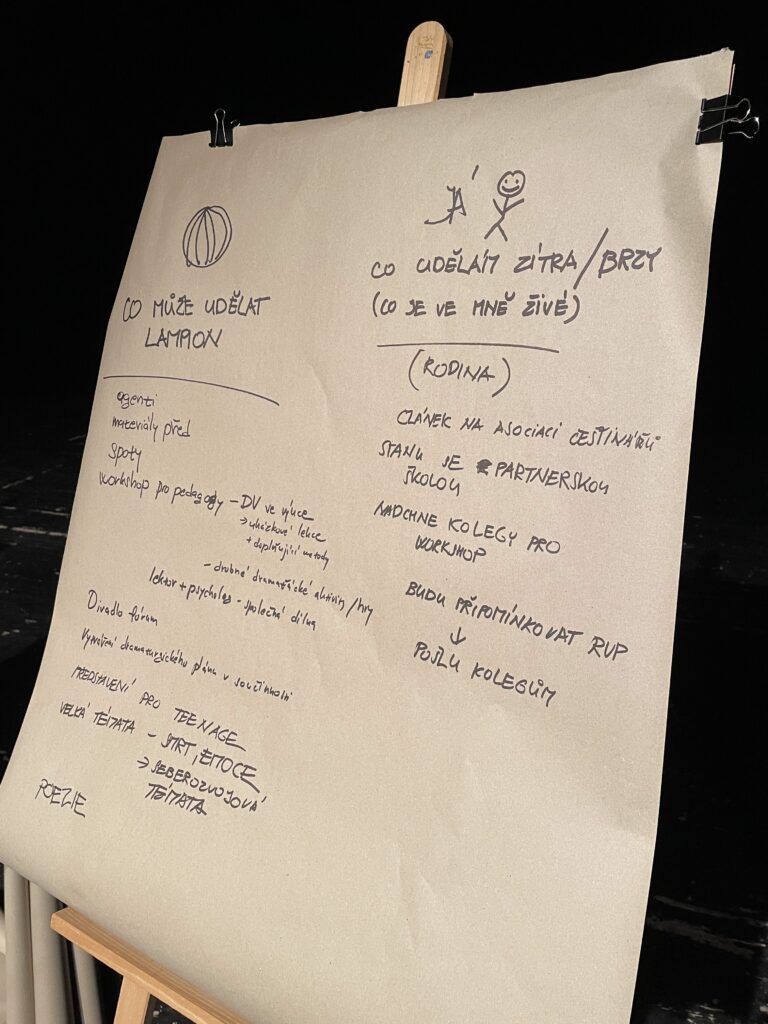 CO MŮŽE UDĚLAT
LAMPION
agenti
materiály před
spoty
workshop pro pedagogy - DV ve výuce
→ ukázkové lekce
+ doplňující metody
- drobné dramatické aktivity/hry
lektor + psycholog - společná dílna
Divadlo fórum
Vytvoření dramaturgického plánu v součinnosti
PŘEDSTAVENÍ PRO TEENAGE
VELKÁ TÉMATA - SMRT, EMOCE
→ SEBEROZVOJOVÁ
TÉMATA
POEZIE
JÁ
CO UDĚLÁM ZÍTRA/BRZY
(CO JE VE MNĚ ŽIVÉ)
(RODINA)
ČLÁNEK NA ASOCIACI ČEŠTINÁŘŮ
STANU SE PARTNERSKOU
ŠKOLOU
NADCHNE KOLEGY PRO
WORKSHOP
BUDU PŘIPOMÍNKOVAT RVP
↓
POŠLU KOLEGŮM